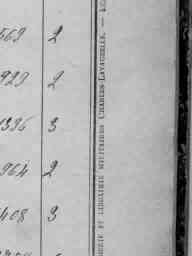 569 2
923 2
1336 3
964 2
408 3
ET LIBRAIRIE MILITAIRES CHARLES-LAVAUZELLE. —